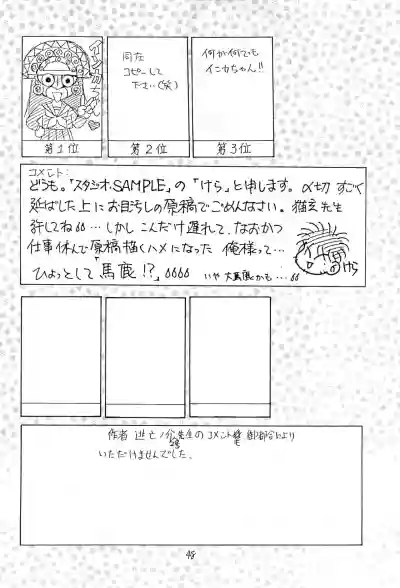 インカちゃん
同左
コピーして
下さい(笑)
何が何でも
インカちゃん!!
第1位
第2位
第3位
コメント:
どうも。「スタジオ.SAMPLE」の「けら」と申します。〆切 すごく
延ばした上にお目汚しの原稿でごめんなさい。猫玄先生
許してね…しかし こんだけ遅れて、なおかつ
仕事休んで原稿描くハメになった 俺様って…
ひょっとして「馬鹿!?」
いや 大馬鹿かも…
けら
作者 逃亡ノ介先生の コメント等 御都合により
いただけませんでした。
48